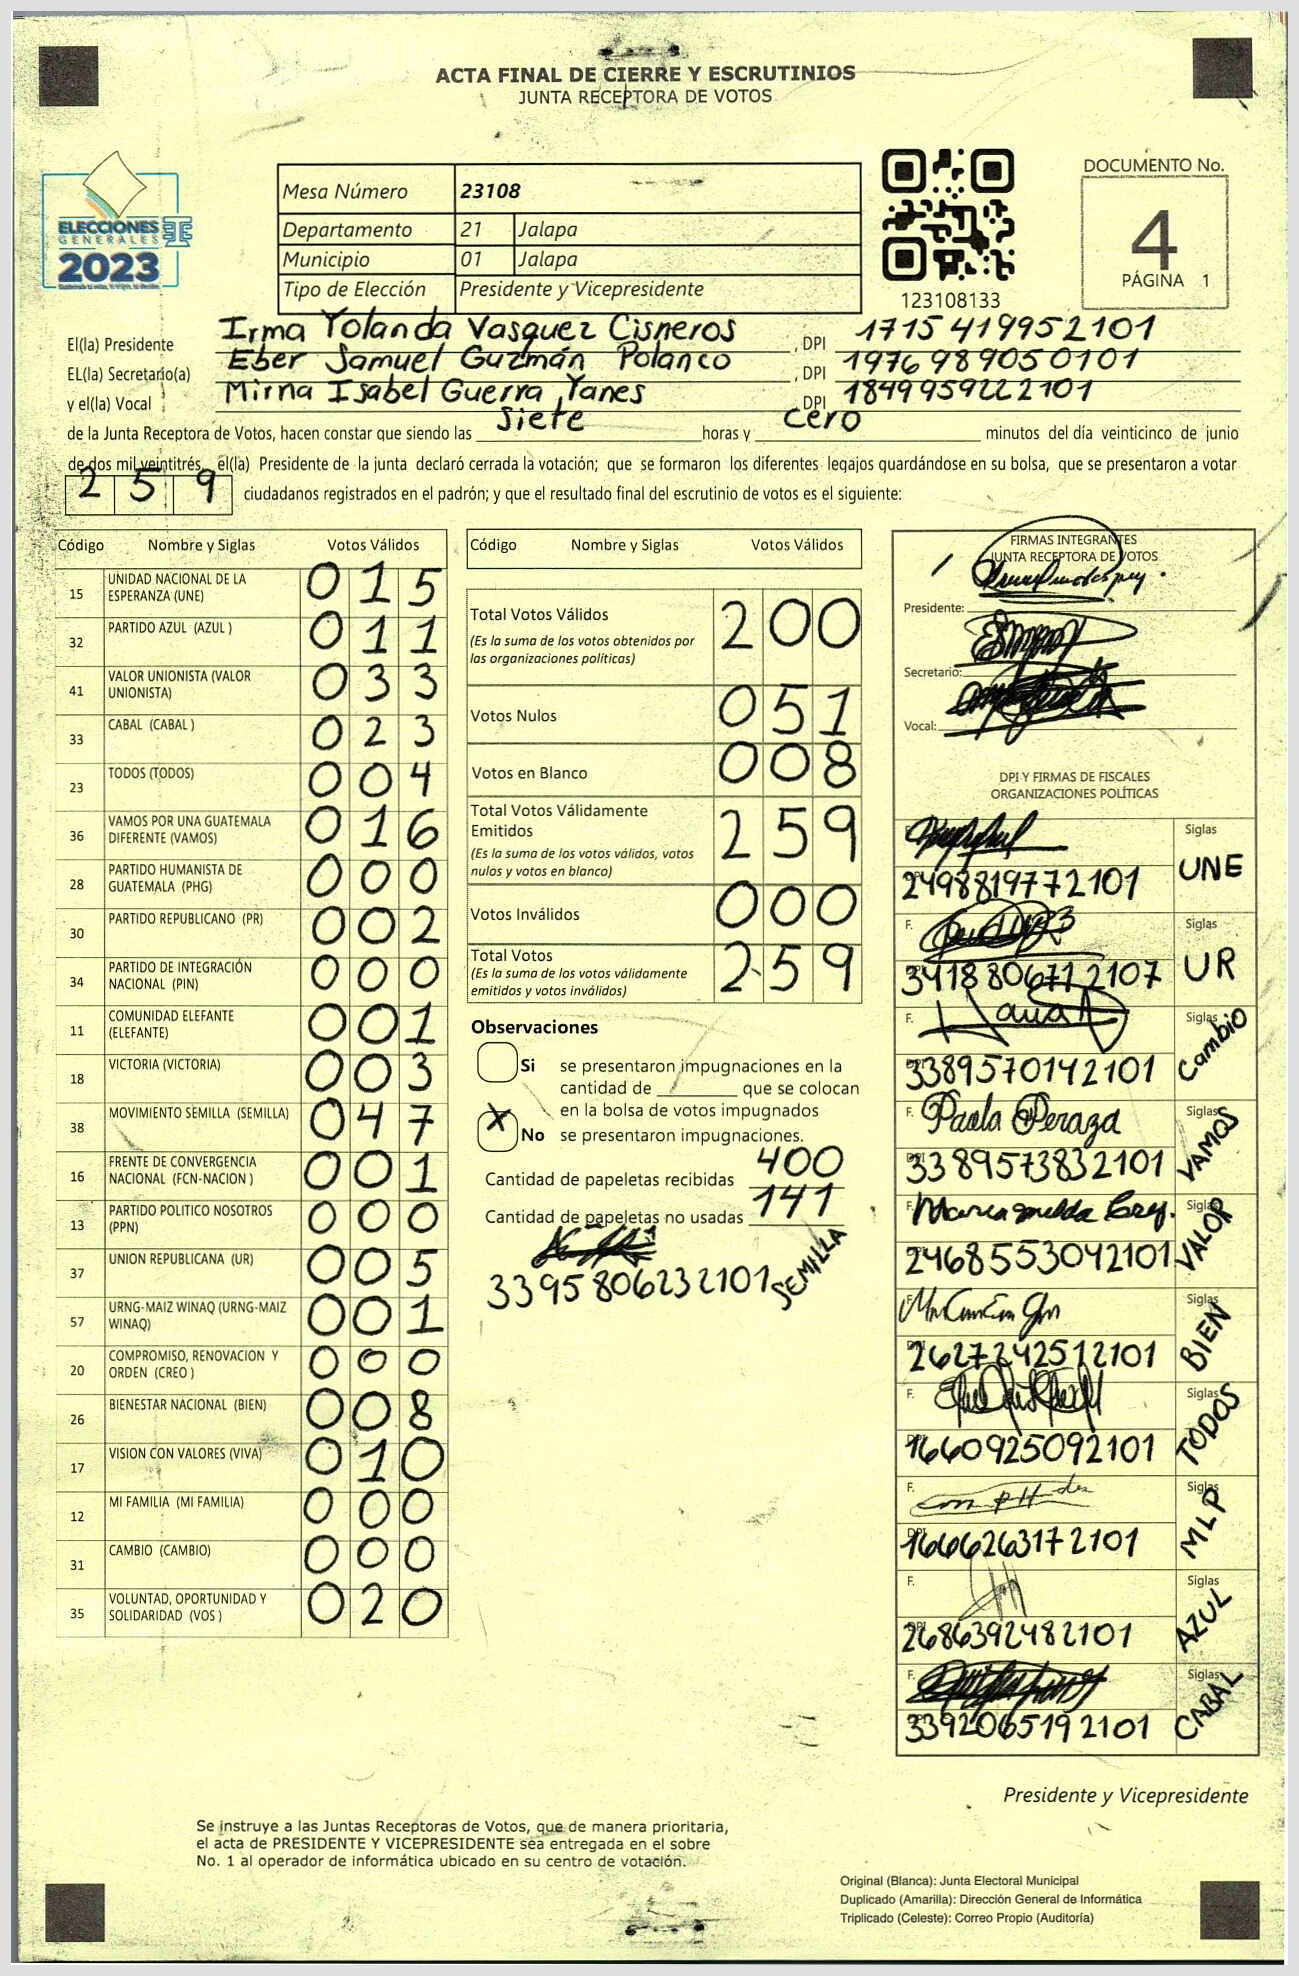 ACTA FINAL DE CIERRE Y ESCRUTINIOS
JUNTA RECEPTORA DE VOTOS
ELECCIONES
GENERALES
2023
Mesa Número 23108
Departamento 21 Jalapa
Municipio 01 Jalapa
Tipo de Elección Presidente y Vicepresidente
123108133
DOCUMENTO No.
4
PÁGINA 1
El(la) Presidente Irma Yolanda Vasquez Cisneros, DPI 1715419952101
EL(la) Secretario(a) Eber Samuel Guzmán Polanco, DPI 1976989050101
y el(la) Vocal Mirna Isabel Guerra Yanes, DPI 1849959222101
de la Junta Receptora de Votos, hacen constar que siendo las siete horas y cero minutos del día veinticinco de junio
de dos mil veintitrés, el(la) Presidente de la junta declaró cerrada la votación; que se formaron los diferentes legajos guardándose en su bolsa, que se presentaron a votar
259 ciudadanos registrados en el padrón; y que el resultado final del escrutinio de votos es el siguiente:
Código Nombre y Siglas Votos Válidos
15 UNIDAD NACIONAL DE LA ESPERANZA (UNE) 015
32 PARTIDO AZUL (AZUL ) 011
41 VALOR UNIONISTA (VALOR UNIONISTA) 033
33 CABAL (CABAL ) 023
23 TODOS (TODOS) 004
36 VAMOS POR UNA GUATEMALA DIFERENTE (VAMOS) 016
28 PARTIDO HUMANISTA DE GUATEMALA (PHG) 000
30 PARTIDO REPUBLICANO (PR) 002
34 PARTIDO DE INTEGRACIÓN NACIONAL (PIN) 000
11 COMUNIDAD ELEFANTE (ELEFANTE) 001
18 VICTORIA (VICTORIA) 003
38 MOVIMIENTO SEMILLA (SEMILLA) 047
16 FRENTE DE CONVERGENCIA NACIONAL (FCN-NACION ) 001
13 PARTIDO POLITICO NOSOTROS (PPN) 000
37 UNION REPUBLICANA (UR) 005
57 URNG-MAIZ WINAQ (URNG-MAIZ WINAQ) 001
20 COMPROMISO, RENOVACION Y ORDEN (CREO ) 000
26 BIENESTAR NACIONAL (BIEN) 008
17 VISION CON VALORES (VIVA) 010
12 MI FAMILIA (MI FAMILIA) 000
31 CAMBIO (CAMBIO) 000
35 VOLUNTAD, OPORTUNIDAD Y SOLIDARIDAD (VOS ) 020
Código Nombre y Siglas Votos Válidos
Total Votos Válidos 200
(Es la suma de los votos obtenidos por
las organizaciones políticas)
Votos Nulos 051
Votos en Blanco 008
Total Votos Válidamente
Emitidos 259
(Es la suma de los votos válidos, votos
nulos y votos en blanco)
Votos Inválidos 000
Total Votos 259
(Es la suma de los votos válidamente
emitidos y votos inválidos)
Observaciones
Si se presentaron impugnaciones en la
cantidad de ________ que se colocan
en la bolsa de votos impugnados
X No se presentaron impugnaciones.
Cantidad de papeletas recibidas 400
Cantidad de papeletas no usadas 141
3395806232101 SEMILLA
FIRMAS INTEGRANTES
JUNTA RECEPTORA DE VOTOS
Presidente:
Secretario:
Vocal:
DPI Y FIRMAS DE FISCALES
ORGANIZACIONES POLÍTICAS
Siglas
2498819772101 UNE
F. Siglas
3418806712107 UR
F. Siglas
3389570142101 Cambio
F. Paola Peraza Siglas
3389573832101 VAMOS
Siglas
2468553042101 VALOR
F. Siglas
2627242512101 BIEN
F. Siglas
1660925092101 TODOS
F. Siglas
1666263172101 MLP
F. Siglas
2686392482101 AZUL
F. Siglas
3392065192101 CABAL
Presidente y Vicepresidente
Se instruye a las Juntas Receptoras de Votos, que de manera prioritaria,
el acta de PRESIDENTE Y VICEPRESIDENTE sea entregada en el sobre
No. 1 al operador de informática ubicado en su centro de votación.
Original (Blanca): Junta Electoral Municipal
Duplicado (Amarilla): Dirección General de Informática
Triplicado (Celeste): Correo Propio (Auditoría)